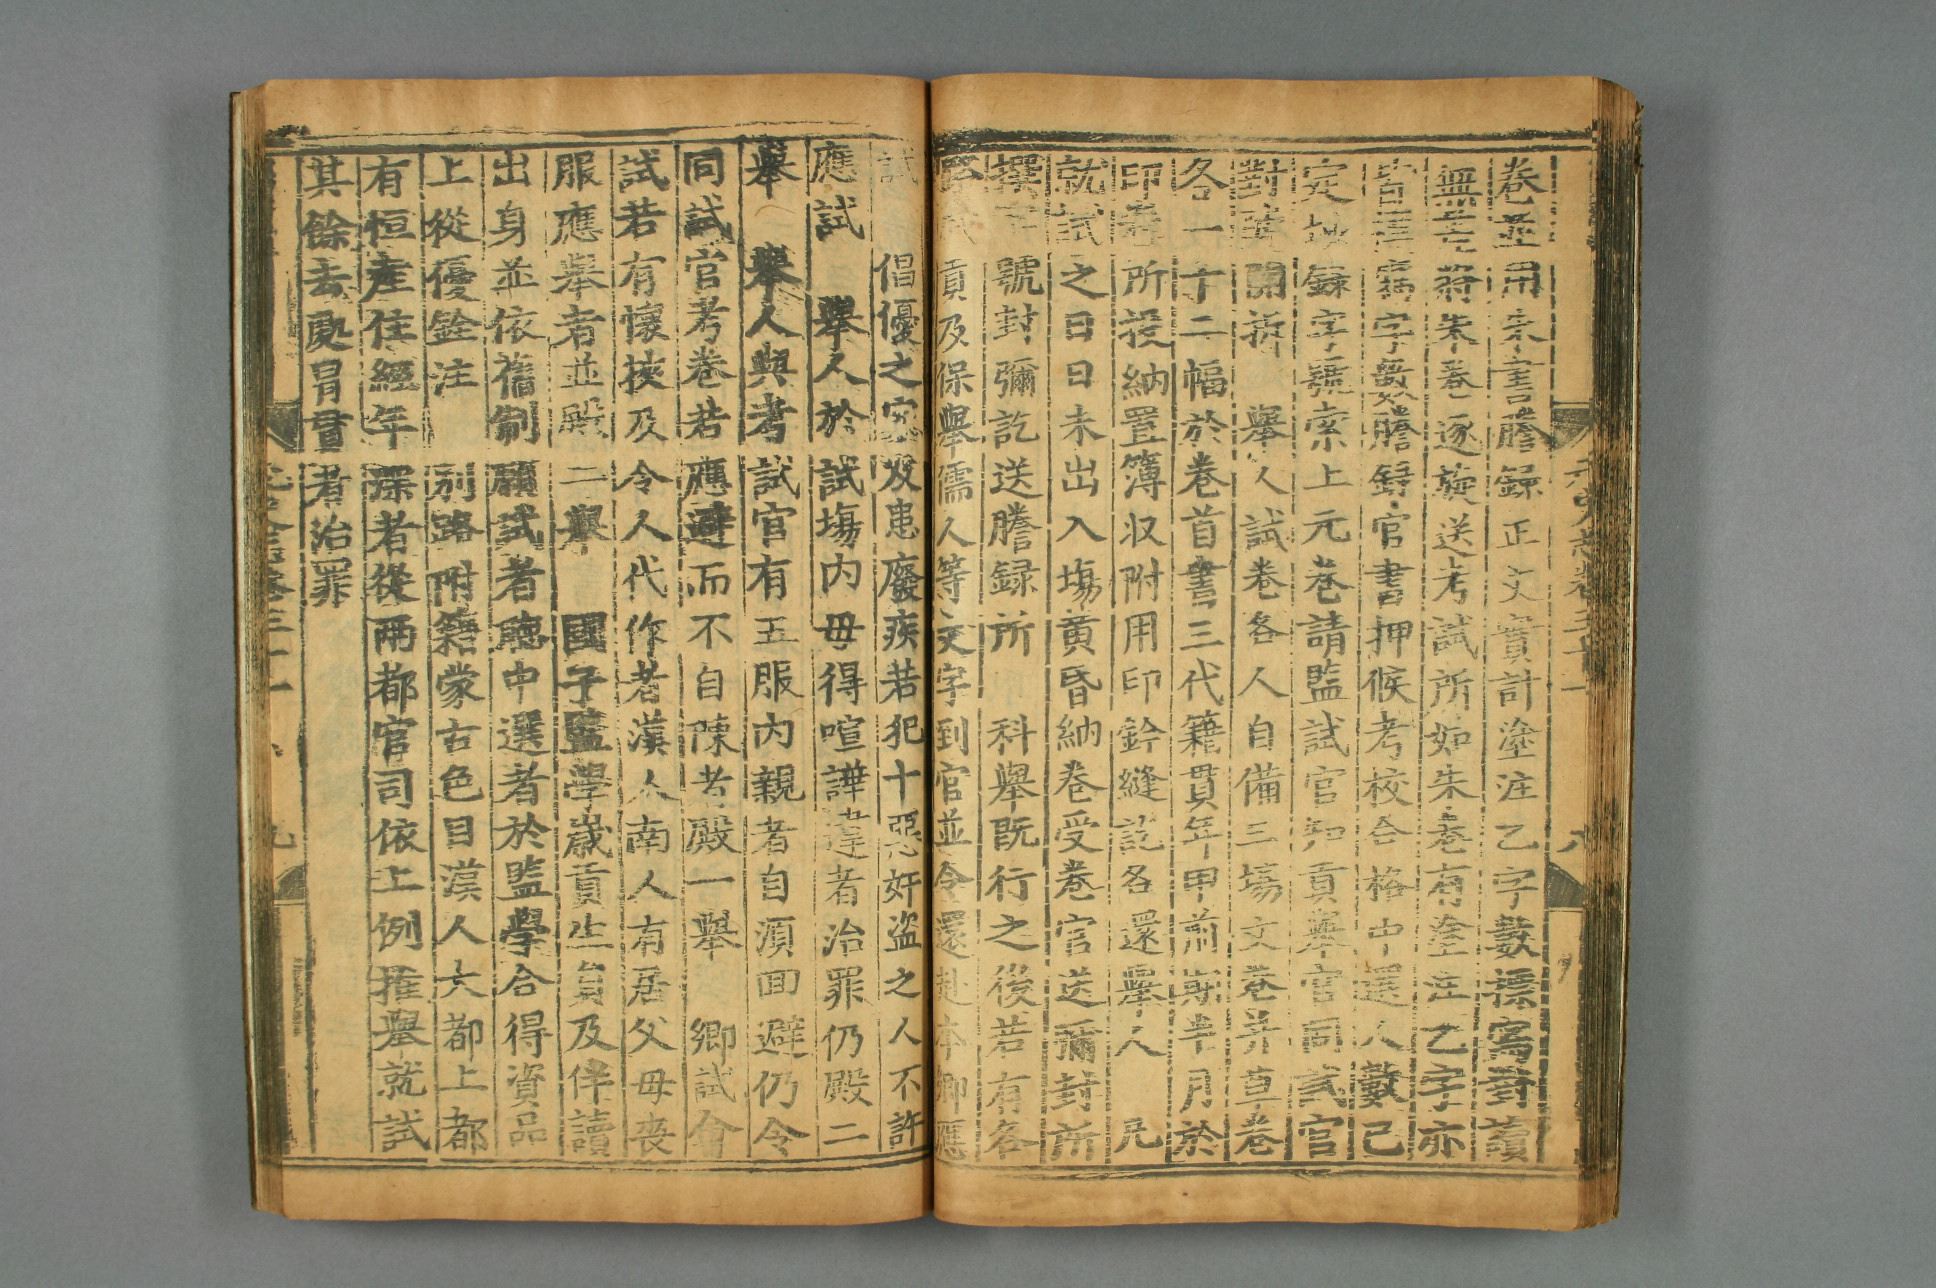 卷並用朱書謄錄正文實計塗注乙字數標寫對讀
無差將朱卷逐旋送考試所如朱卷有塗注乙字亦
皆標寫字數謄録官書押候考校合格中選人數已
定抄錄字號索上元卷請監試官知貢舉官同試官
對號開拆　舉人試卷各人自備三場文卷并草卷
各一十二幅於卷首書三代籍貫年甲前期半月於
印卷所投納置簿収附用印鈐縫訖各還舉人　凡
就試之日日未出入塲黄昏納卷受卷官送彌封所
撰字號封彌訖送謄録所　科舉既行之後若有各
路歲貢及保舉儒人等文字到官並令還赴本鄉應
試　倡優之家及患廢疾若犯十惡奸盗之人不許
應試　舉人於試塲内毋得喧譁違者治罪仍殿二
舉　舉人與考試官有五服内親者自湏囬避仍令
同試官考卷若應避而不自陳者殿一舉　鄉試會
試若有懷挾及令人代作者漢人南人有居父母喪
服應舉者並殿二舉　國子監學歲貢生員及伴讀
出身並依舊制願試者聽中選者於監學合得資品
上從優銓注　別路附籍蒙古色目漢人大都上都
有恒産住經年深者從兩都官司依上例推舉就試
其餘去處冒貫者治罪